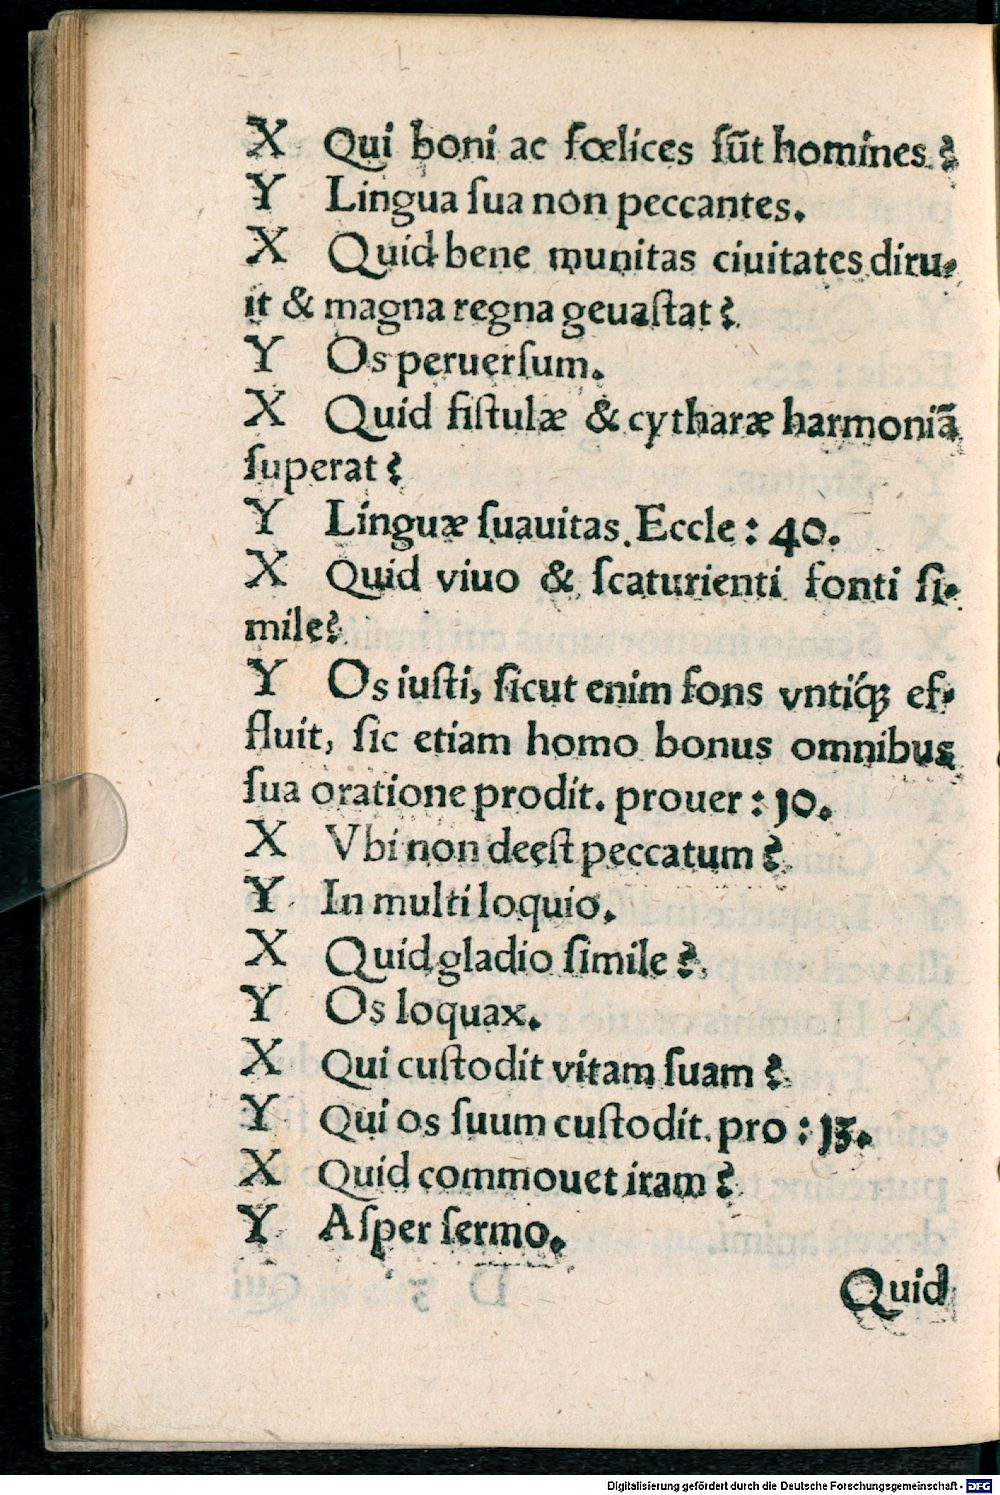 X Qui boni ac fœlices ſũt homines?
Y Lingua ſua non peccantes.
X Quid bene munitas ciuitates diru-
it & magna regna geuaſtat?
Y Os peruerſum.
X Quid fiſtulæ & cytharæ harmoniã
ſuperat?
Y Linguæ ſuauitas. Eccle: 40.
X Quid viuo & ſcaturienti fonti ſi-
mile?
Y Os iuſti, ſicut enim fons vntiq́ꝫ ef-
fluit, ſic etiam homo bonus omnibus
ſua oratione prodit. prouer: 10.
X Vbi non deeſt peccatum?
Y In multi loquio.
X Quid gladio ſimile?
Y Os loquax.
X Qui cuſtodit vitam ſuam?
Y Qui os ſuum cuſtodit. pro: 13.
X Quid commouet iram?
Y Aſper ſermo.
Quid
Digitalisierung gefördert durch die Deutsche Forschungsgemeinschaft - DFG